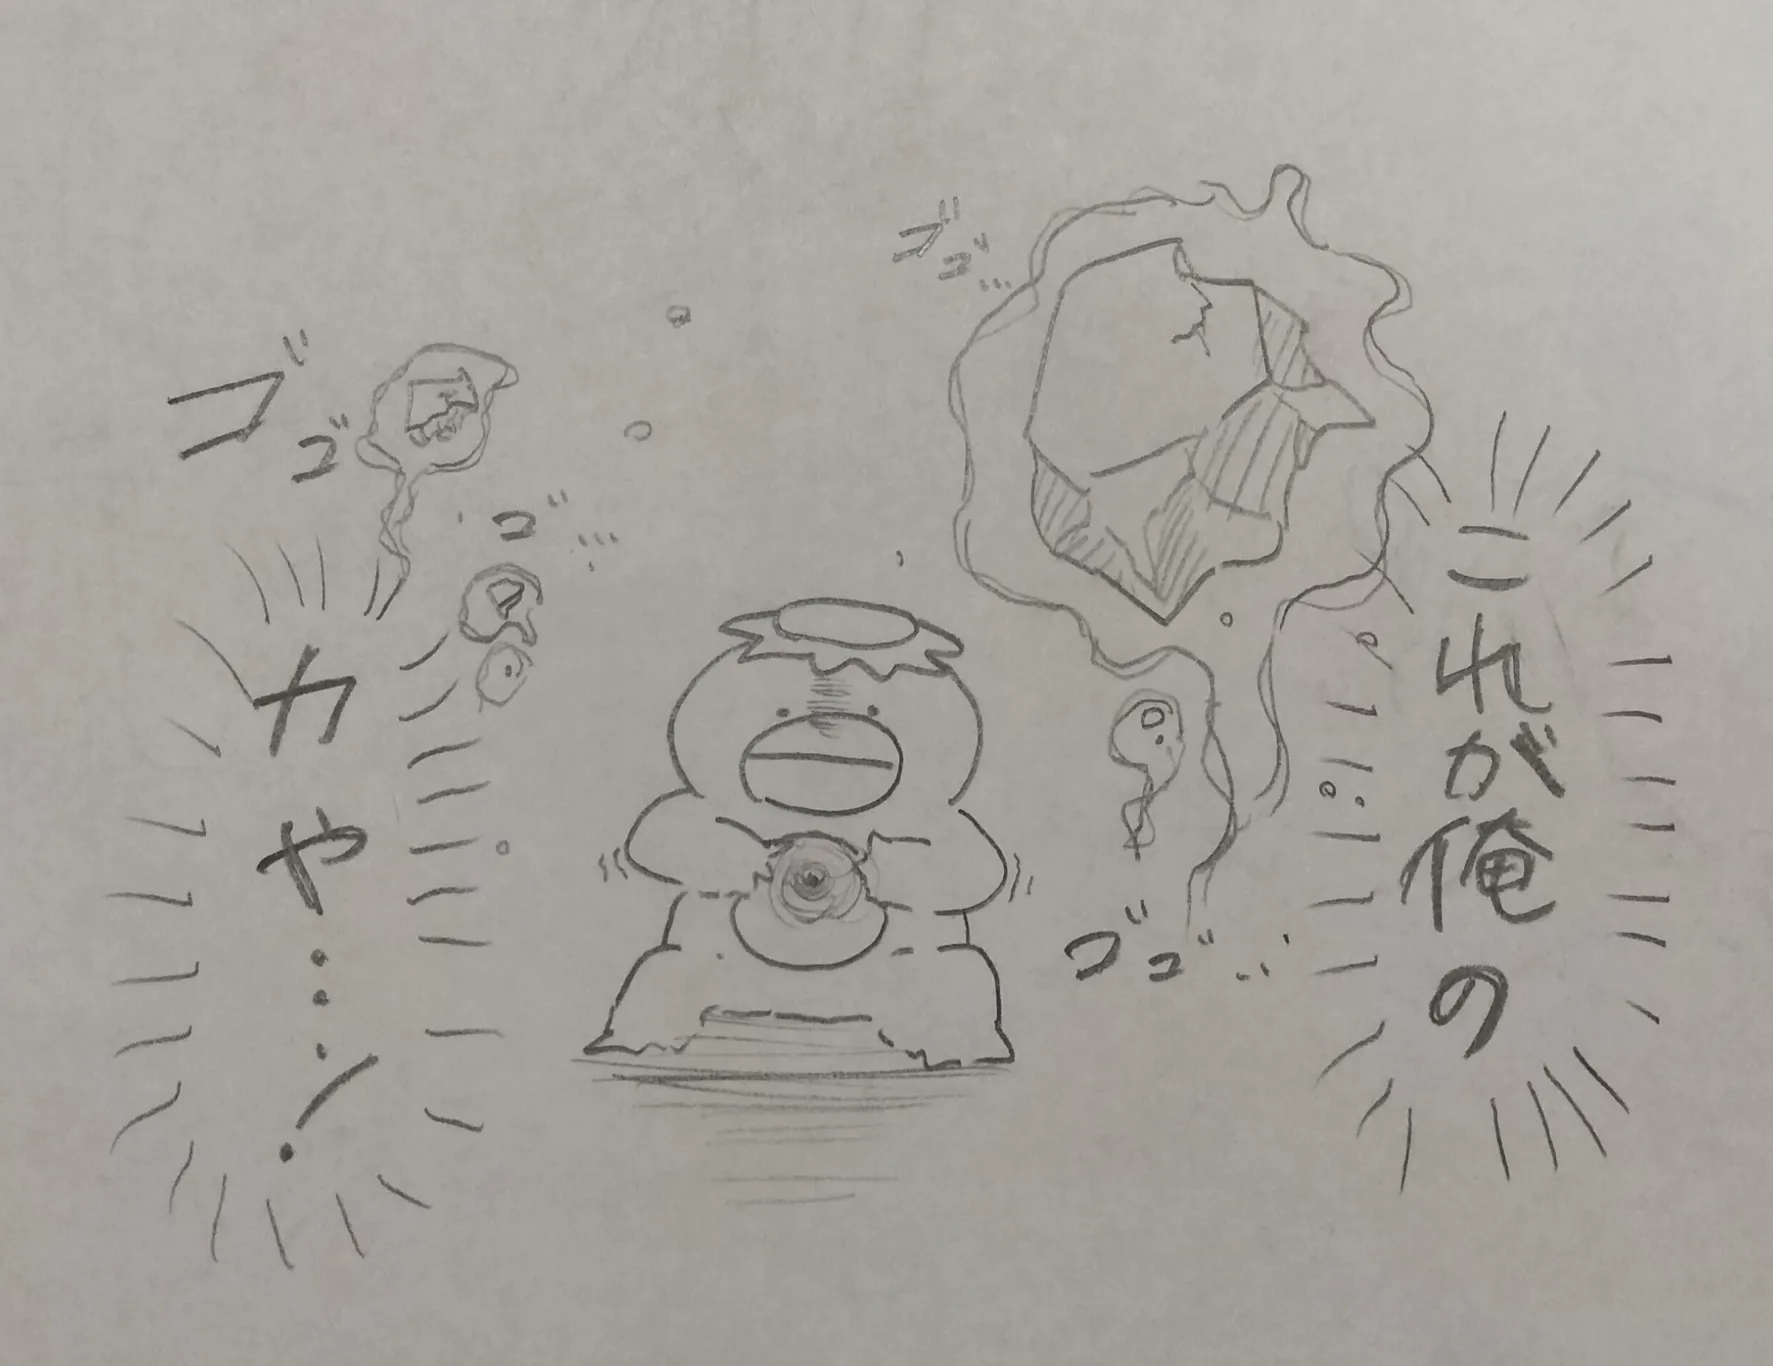 これが俺の
力や…!
ゴゴ…
ゴゴゴ…
ゴゴ…